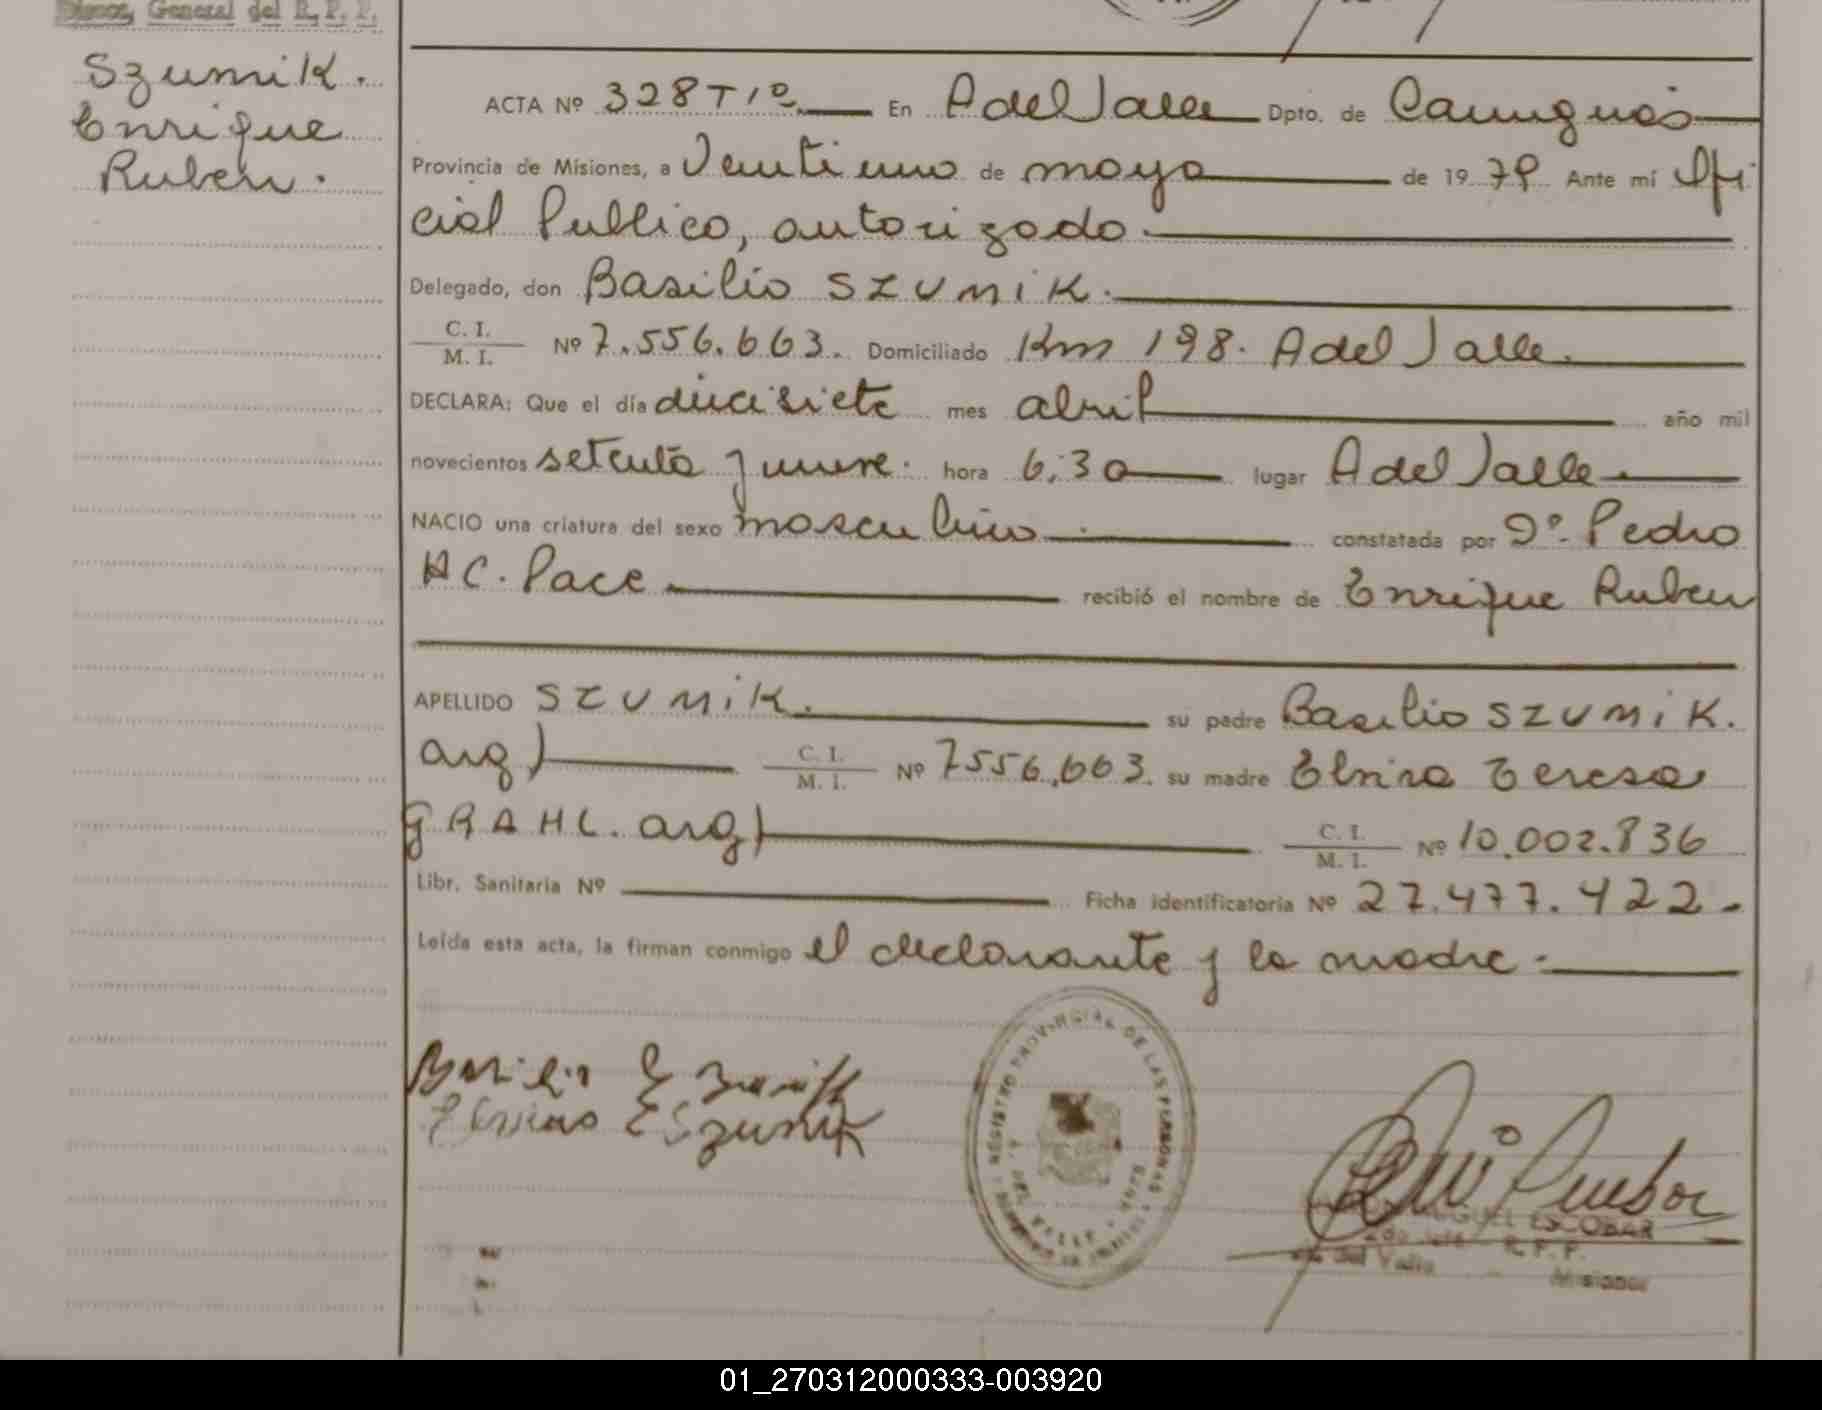 Direc. General del R. P. P.
Szumik.
Enrique
Ruben.
ACTA Nº 328 T 1º. En A del Valle Dpto. de Cainguás
Provincia de Misiones, a Veintiuno de mayo de 1979 Ante mí Ofi
cial Publico, autorizado.
Delegado, don Basilio SZUMIK.
C. I.
M. I. Nº 7.556.663. Domiciliado Km 198. A del Valle.
DECLARA: Que el día diecisiete mes abril año mil
novecientos setenta y nueve. hora 6,30 lugar A del Valle
NACIO una criatura del sexo masculino constatada por Dº. Pedro
H C. Pace recibió el nombre de Enrique Ruben
APELLIDO SZUMIK. su padre Basilio SZUMIK.
arg) C. I. M. I. Nº 7556,663. su madre Elvira Teresa
GRAHL. arg) C. I. M. I. Nº 10.002.836
Libr. Sanitaria Nº Ficha identificatoria Nº 27.477.422.
Leída esta acta, la firman conmigo el declarante y la madre.
REGISTRO PROVINCIAL DE LAS PERSONAS
DEL VALLE
ESCOBAR
R. P. P.
del Valle Misiones
01_270312000333-003920